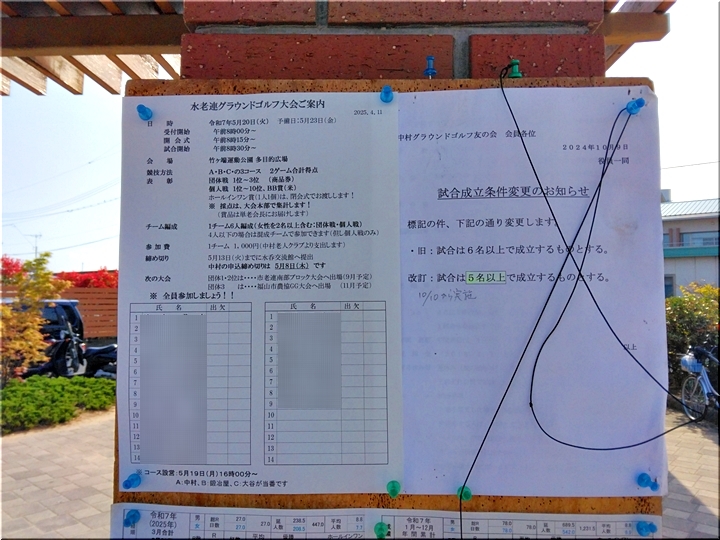 水老連グラウンドゴルフ大会ご案内
2025.4.11
日　時　令和7年5月20日(火)　予備日:5月23日(金)
受付開始　午前8時00分～
開会式　午前8時15分～
試合開始　午前8時30分～
会　場　竹ヶ端運動公園 多目的広場
競技方法　A・B・Cの3コース　2ゲーム合計得点
表　彰　団体戦 1位～3位　(商品券)
個人戦 1位～10位、BB賞(米)
ホールインワン賞(1人1個)は、閉会式でお渡しします!
※ 採点は、大会本部で集計します!
(賞品は単老会長にお届けします)
チーム編成　1チーム6人編成(女性を2名以上含む:団体戦・個人戦)
4人以下の場合は混成チームで参加できます(但し個人戦のみ)
参加費　1チーム 1,000円(中村老人クラブより支出します)
締め切り　5月13日(火)までに水呑交流館へ提出
中村の申込締め切りは 5月8日(木) です
次の大会　団体1・2位は・・・・市老連南部ブロック大会へ出場(9月予定)
団体3　は・・・・福山市農協GG大会へ出場　(11月予定)
※ 全員参加しましょう!!
氏　名　出　欠　氏　名　出　欠
1　1
2　2
3　3
4　4
5　5
6　6
7　7
8　8
9　9
10　10
11　11
12　12
13　13
14　14
※コース設営:5月19日(月)16時00分～
A:中村、B:鍛冶屋、C:大谷が当番です
中村グラウンドゴルフ友の会　会員各位
2024年10月9日
役員一同
試合成立条件変更のお知らせ
標記の件、下記の通り変更します。
・旧:試合は6名以上で成立するものとする。
改訂:試合は5名以上で成立するものとする。
10/10から実施
以上
令和7年
(2025年)
3月合計
令和7年
1月～12月
年間集計